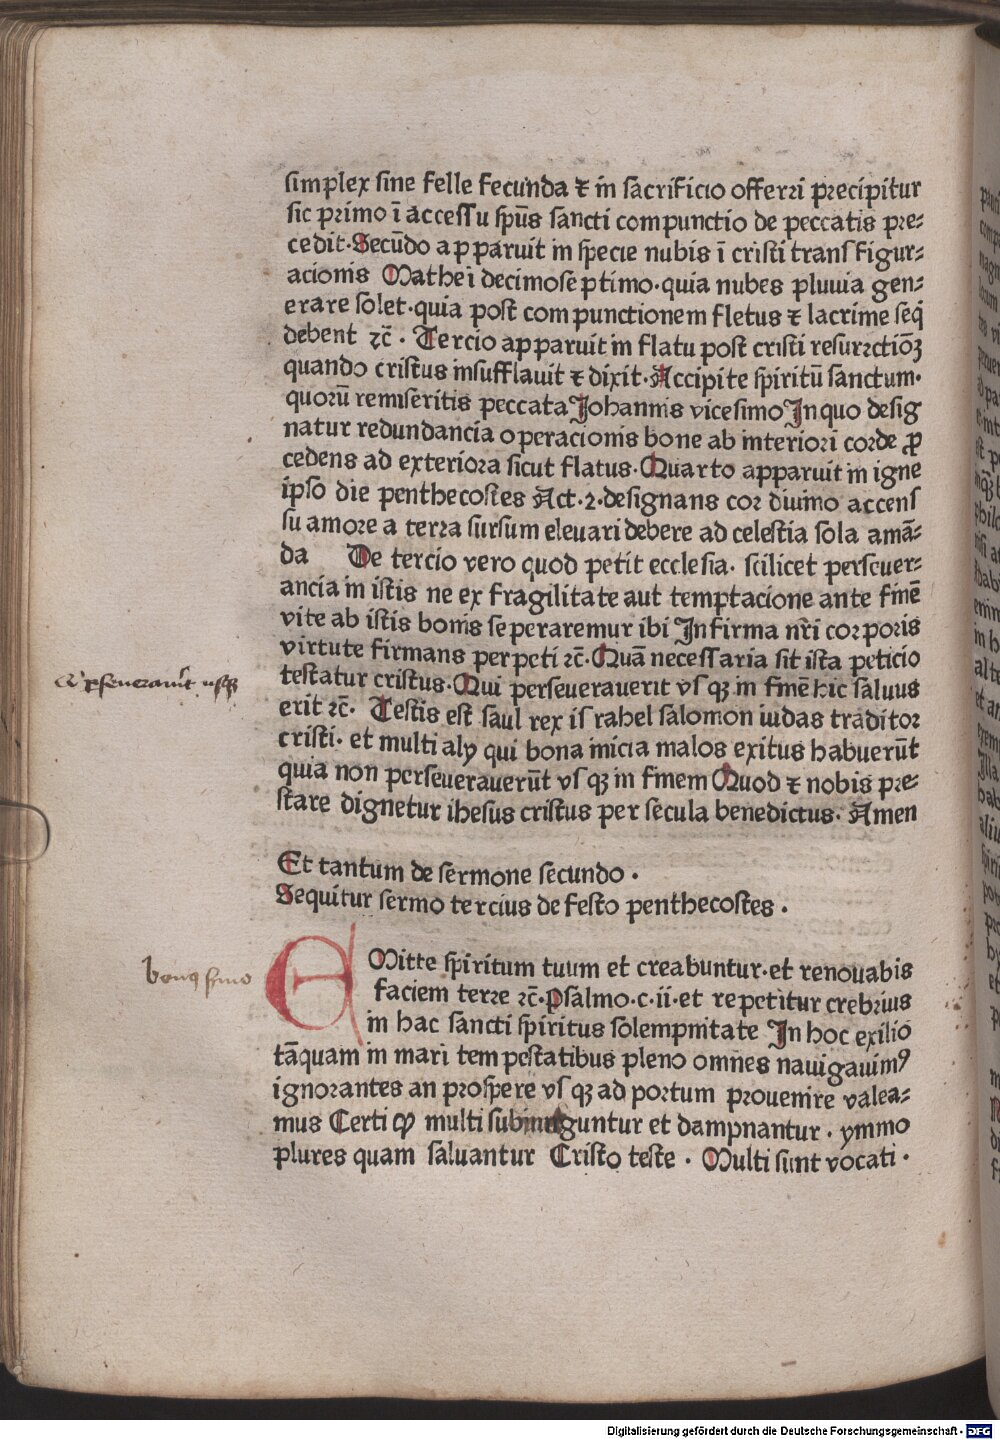 simplex sine felle fecunda ⁊ in sacrificio offerri precipitur
sic primo ī accessu spūs sancti compunctio de peccatis pre⸗
cedit·Secūdo apparuit in specie nubis ī cristi transfigur⸗
acionis Mathei decimoseptimo·quia nubes pluuia gen⸗
erare solet·quia post compunctionem fletus ⁊ lacrime seq̄
debent ⁊c̄ · Tercio apparuit in flatu post cristi resurrctiōꝫ
quando cristus insufflauit ⁊ dixit·Accipite spiritū sanctum·
quorū remiseritis peccata Johannis vicesimo In quo desig
natur redundancia operacionis bone ab interiori corde ꝓ
cedens ad exteriora sicut flatus·Quarto apparuit in igne
ipso die penthecostes Act·2·designans cor diuino accens
su amore a terra sursum eleuari debere ad celestia sola amā⸗
da De tercio vero quod petit ecclesia· scilicet perseuer⸗
ancia in istis ne ex fragilitate aut temptacione ante finē
vite ab istis bonis seperaremur ibi Infirma nr̄i corporis
virtute firmans perpeti ⁊c̄·Quā necessaria sit ista peticio
testatur cristus·Qui perseuerauerit vsqꝫ in finē hic saluus
erit ⁊c̄· Testis est saul rex israhel salomon iudas traditor
cristi· et multi alij qui bona inicia malos exitus habuerūt
quia non perseuerauerūt vsqꝫ in finem Quod ⁊ nobis pre⸗
stare dignetur ihesus cristus per secula benedictus· Amen
Et tantum de sermone secundo ·
Sequitur sermo tercius de festo penthecostes ·
EMitte spiritum tuum et creabuntur·et renouabis
faciem terre ⁊c̄·Psalmo·c·ii·et repetitur crebrius
in hac sancti spiritus solempnitate In hoc exilio
tāquam in mari tempestatibus pleno omnes nauigauimꝰ
ignorantes an prospere vsqꝫ ad portum prouenire valea⸗
mus Certi ꝙ multi subin guntur et dampnantur · ymmo
plures quam saluantur Cristo teste · Multi sunt vocati ·
Digitalisierung gefördert durch die Deutsche Forschungsgemeinschaft - DFG